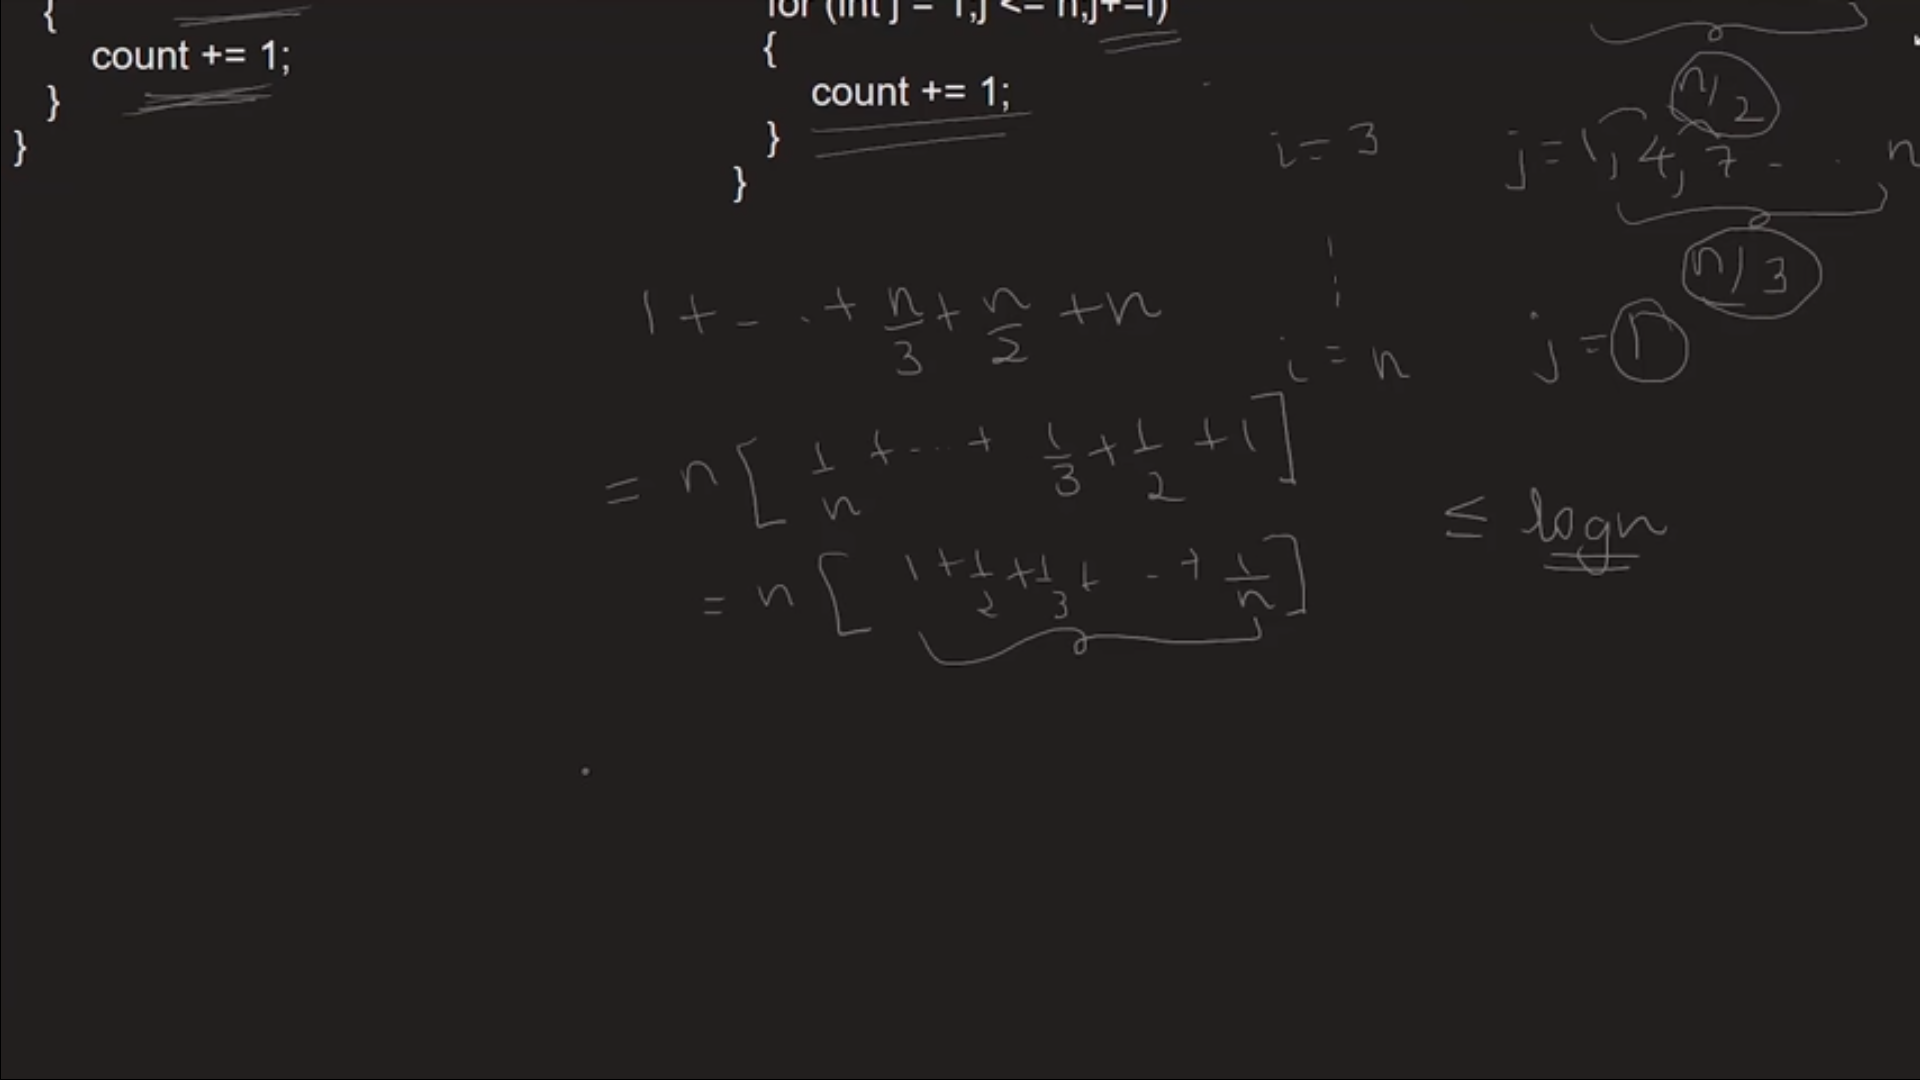 {
count += 1;
}
}
for (int j = 1;j <= n;j+=i)
{
count += 1;
}
}
n/2
i = 3 j = 1, 4, 7 - - n
n/3
i = n j = 1
1 + - . . + n/3 + n/2 + n
= n [ 1/n + - - . + 1/3 + 1/2 + 1 ]
= n [ 1 + 1/2 + 1/3 + - - + 1/n ] ≤ logn